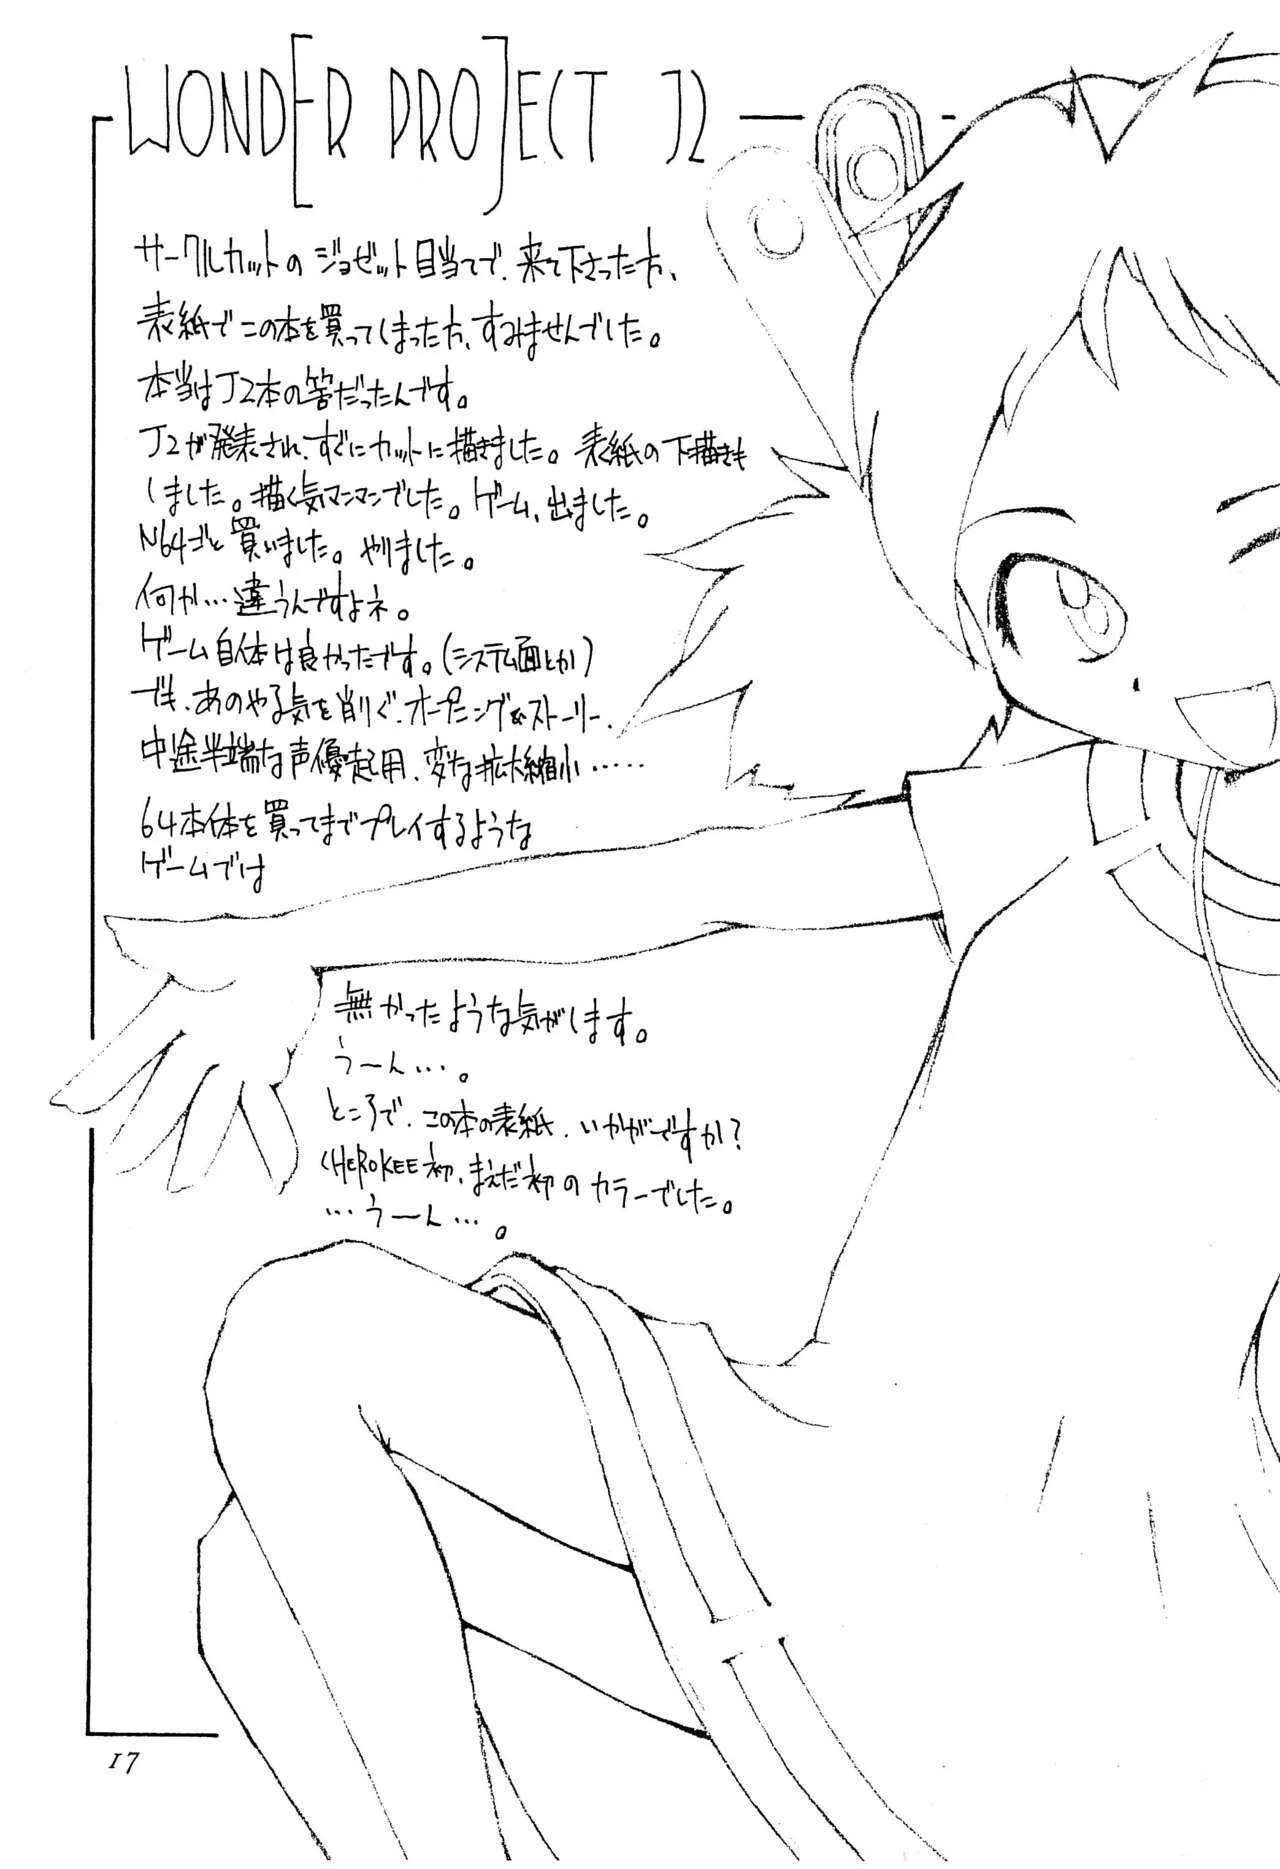 WONDER PROJECT J2
サークルカットのジョゼット目当てで、来て下さった方、
表紙でこの本を買ってしまった方、すみませんでした。
本当はJ2本の筈だったんです。
J2が発表され、すぐにカットに描きました。表紙の下描きも
しました。描く気マンマンでした。ゲーム、出ました。
N64ごと買いました。やりました。
何か…違うんですよネ。
ゲーム自体は良かったです。(システム面とか)
でも、あのやる気を削ぐ、オープニング&ストーリー、
中途半端な声優起用、変な拡大縮小……
64本体を買ってまでプレイするような
ゲームでは
無かったような気がします。
うーん…。
ところで、この本の表紙、いかがですか?
CHEROKEE初、まえだ初のカラーでした。
…うーん…。
17